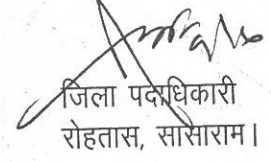 जिला पदाधिकारी
रोहतास, सासाराम।